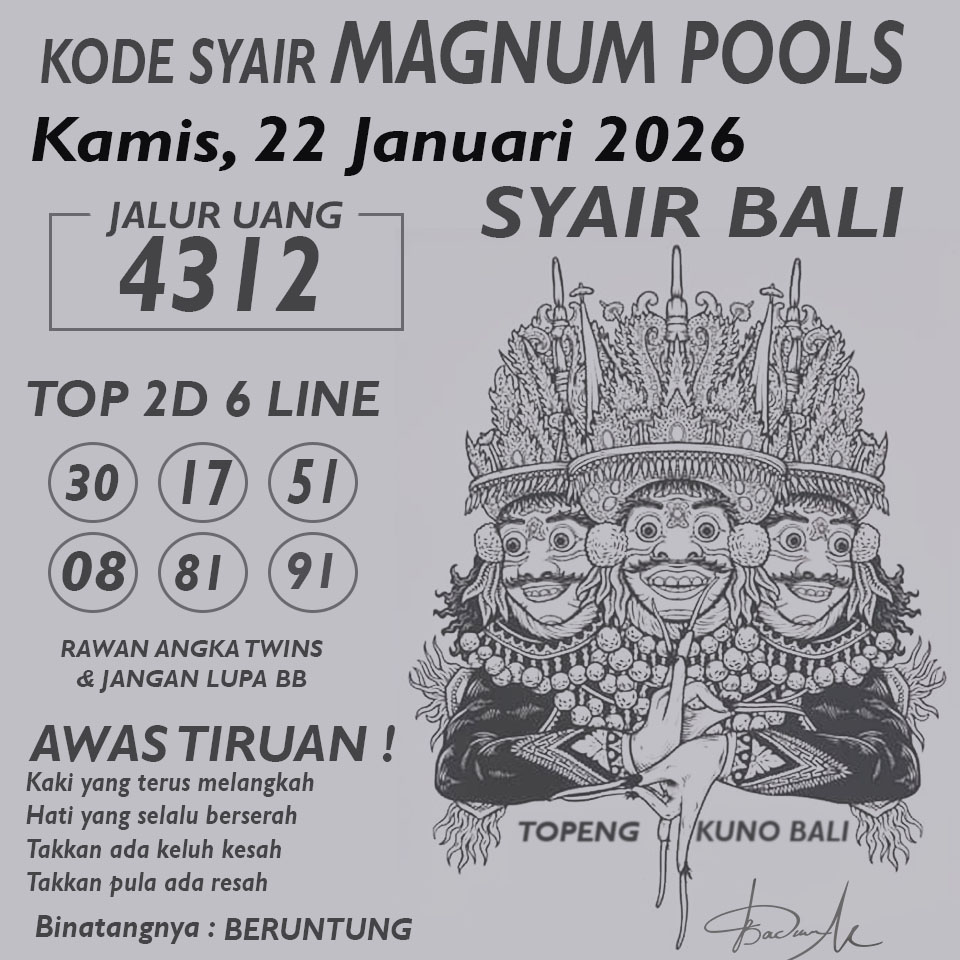 KODE SYAIR MAGNUM POOLS
Kamis, 22 Januari 2026
JALUR UANG
4312
SYAIR BALI
TOP 2D 6 LINE
30 17 51
08 81 91
RAWAN ANGKA TWINS
& JANGAN LUPA BB
AWAS TIRUAN !
Kaki yang terus melangkah
Hati yang selalu berserah
Takkan ada keluh kesah
Takkan pula ada resah
Binatangnya : BERUNTUNG
TOPENG KUNO BALI